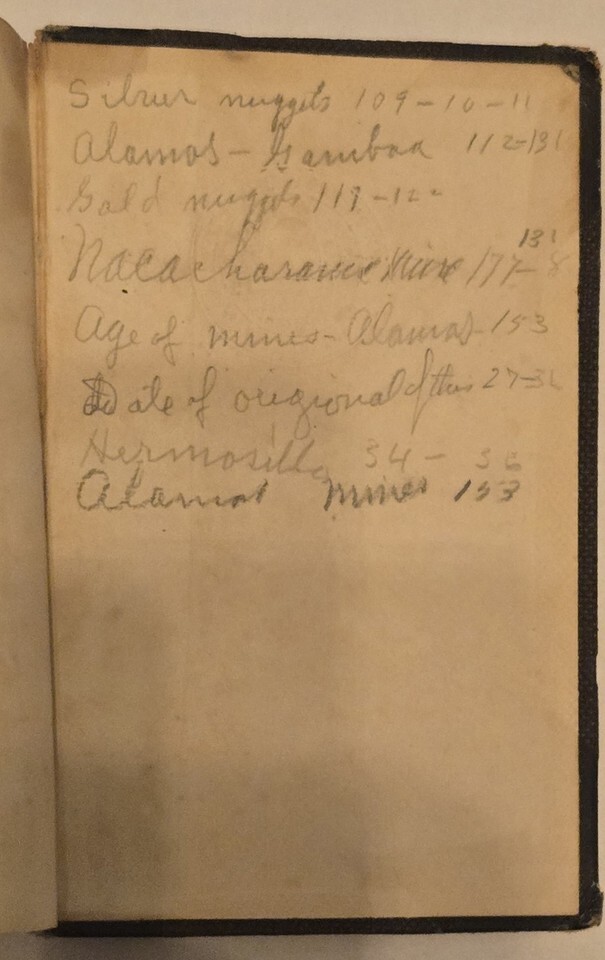 Silver nuggets 109-10-11
Alamos - Gamboa 112-131
Gold nuggets 119-12
131
Nacacharame Mine 177-8
Age of mines - Alamos 153
Date of origional of this 27-32
Hermosillo 34 - 36
Alamos mines 153